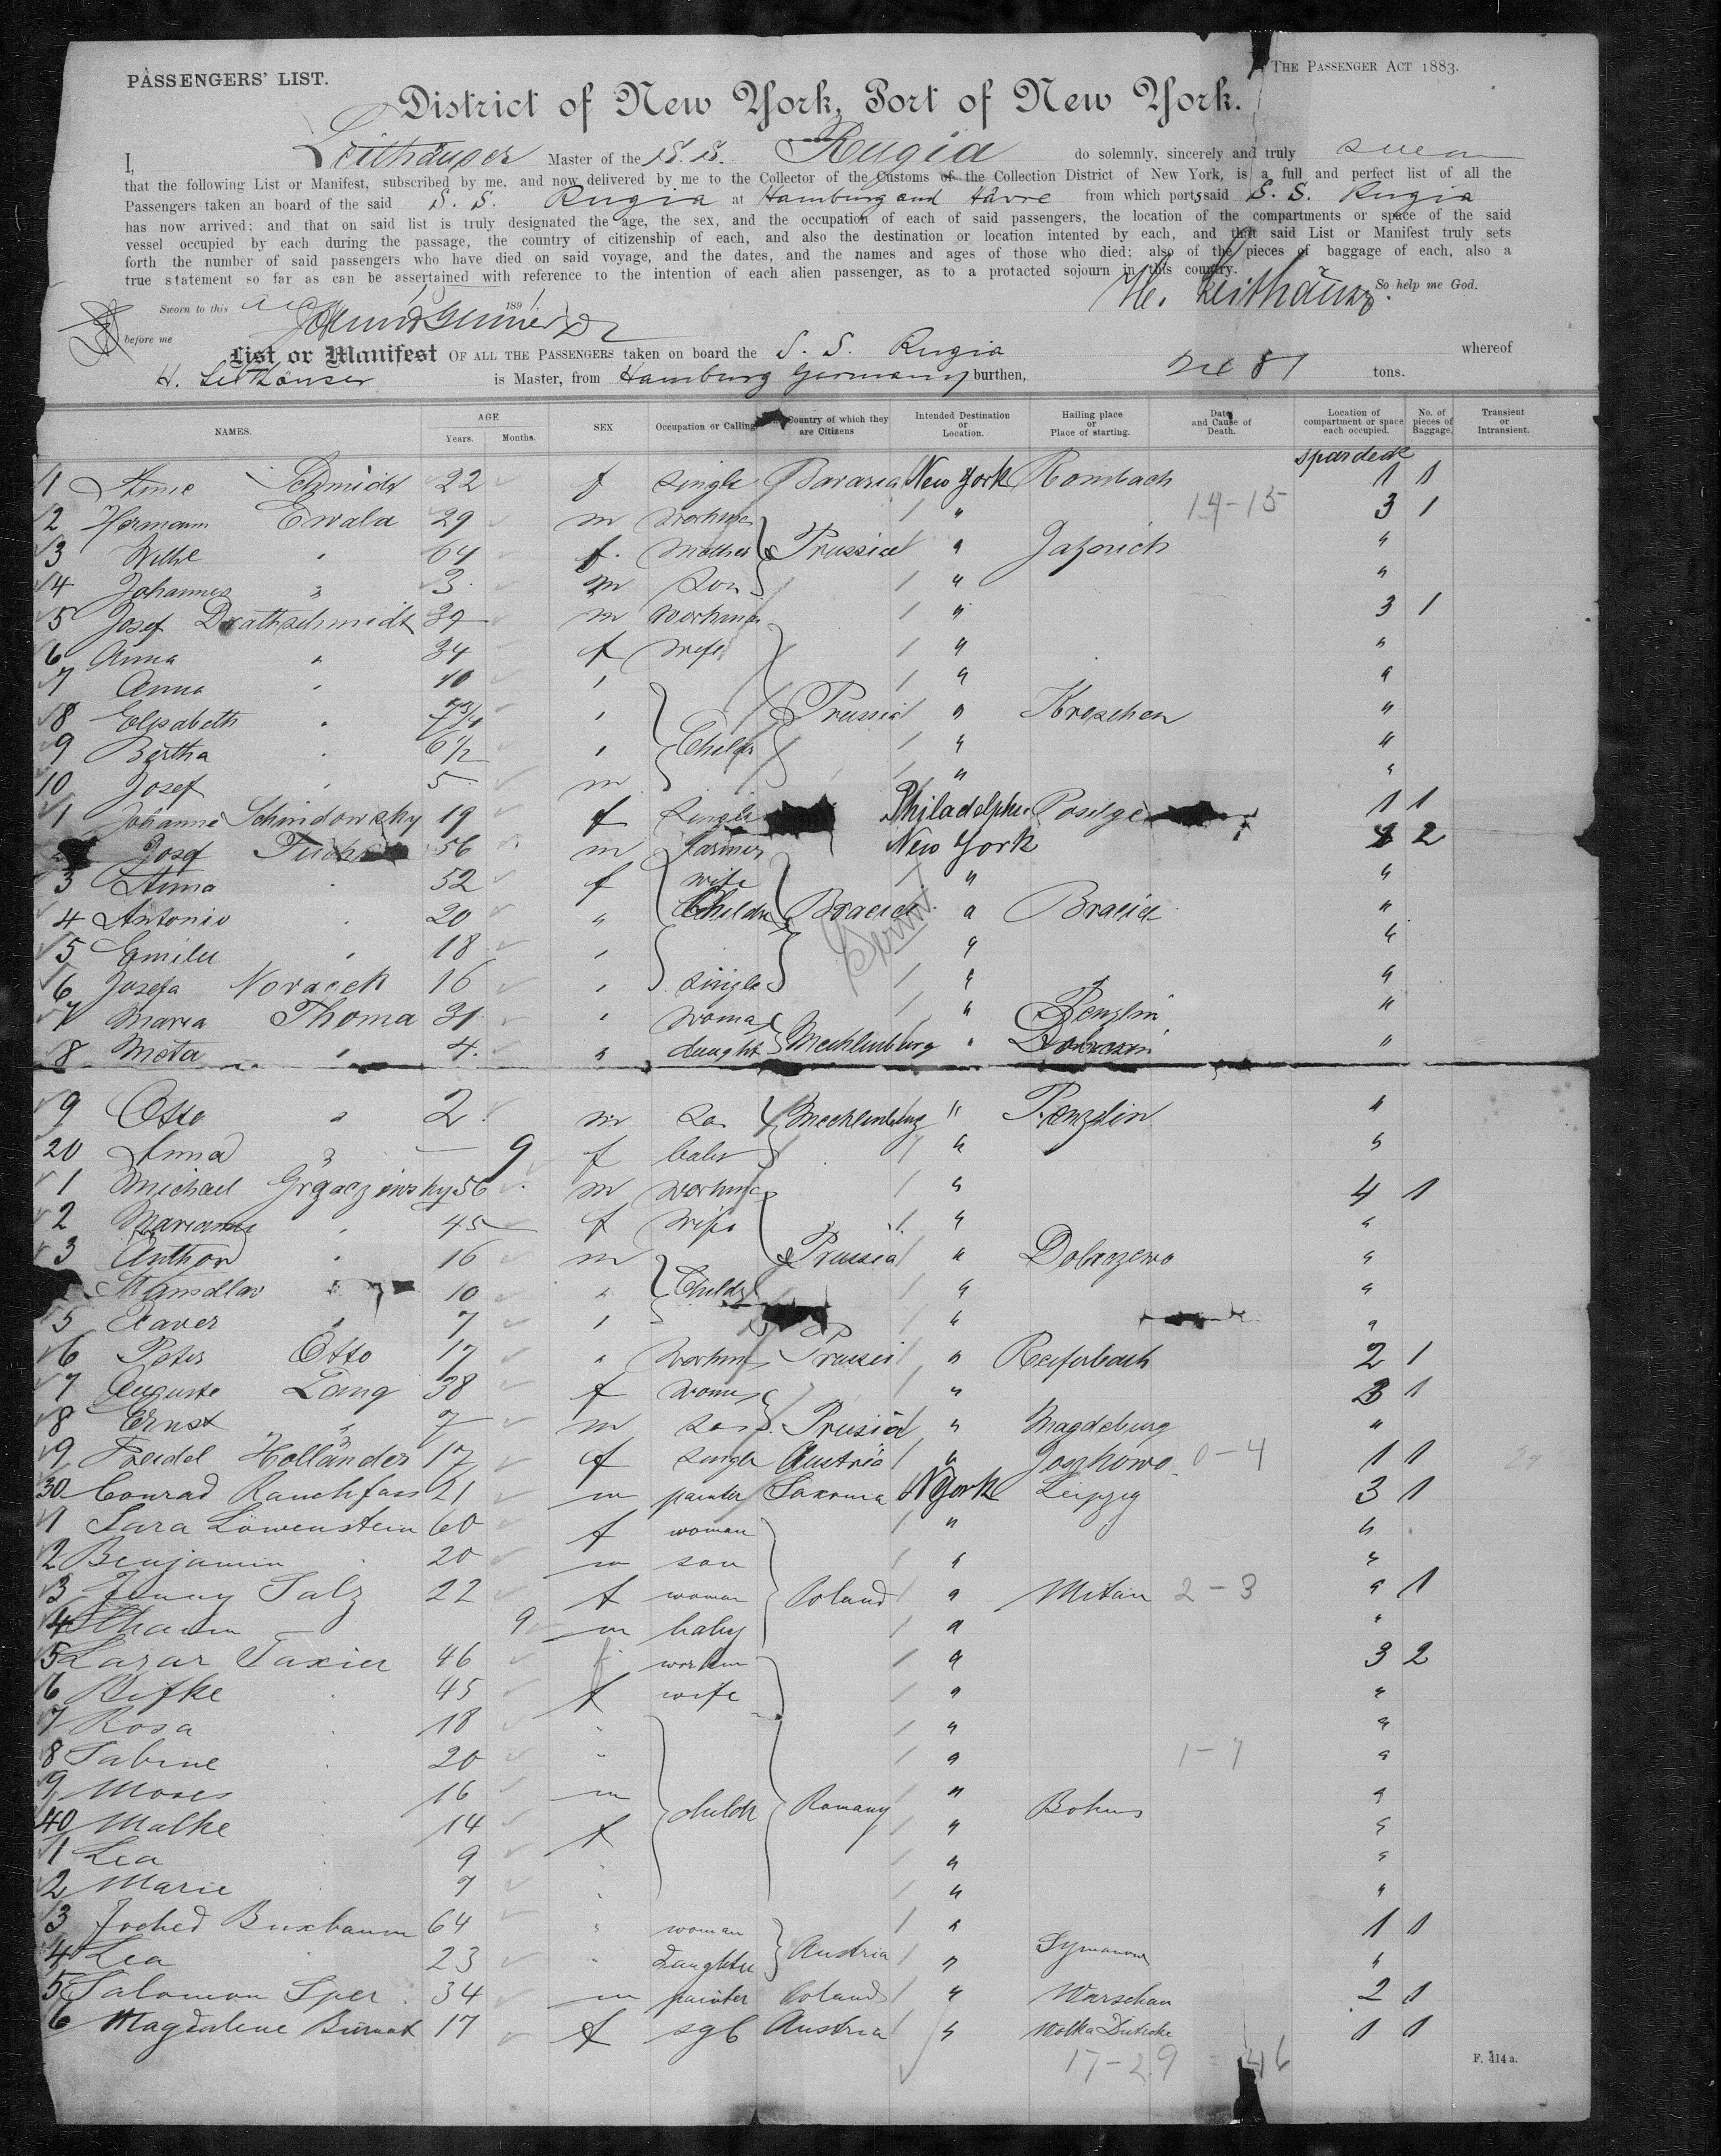 PASSENGERS' LIST.
THE PASSENGER ACT 1883.
District of New York, Port of New York.
I, Leithäuser Master of the S.S. Rugia do solemnly, sincerely and truly swear
that the following List or Manifest, subscribed by me, and now delivered by me to the Collector of the Customs of the Collection District of New York, is a full and perfect list of all the
Passengers taken an board of the said S. S. Rugia at Hamburg and Hâvre from which ports said S. S. Rugia
has now arrived; and that on said list is truly designated the age, the sex, and the occupation of each of said passengers, the location of the compartments or space of the said
vessel occupied by each during the passage, the country of citizenship of each, and also the destination or location intented by each, and that said List or Manifest truly sets
forth the number of said passengers who have died on said voyage, and the dates, and the names and ages of those who died; also of the pieces of baggage of each, also a
true statement so far as can be assertained with reference to the intention of each alien passenger, as to a protacted sojourn in this country.
So help me God.
H. Leithäuser
Sworn to this 1891
before me
List or Manifest OF ALL THE PASSENGERS taken on board the S. S. Rugia whereof
H. Leithäuser is Master, from Hamburg Germany burthen, tons.
NAMES. AGE Years. Months. SEX Occupation or Calling Country of which they are Citizens Intended Destination or Location. Hailing place or Place of starting. Date and Cause of Death. Location of compartment or space each occupied. No. of pieces of Baggage. Transient or Intransient.
spardeck
1 Anna Schmidt 22 f single Bavaria New York Rombach 1 1
2 Hermann Ewald 29 m workman " 14-15 3 1
3 Wilhe " 64 f. mother Prussia " "
4 Johannes " 3 m son " "
5 Josef Drathschmidt 39 m workman " 3 1
6 Anna " 34 f wife " "
7 Anna " 10 " " "
8 Elisabeth " 7 3/4 " Prussia " Kroschen "
9 Bertha 6 1/2 " Childr " "
10 Josef " 5 m " "
1 Johanne Schindowsky 19 f single Philadelphia Posilge 1 1
2 Josef 56 m farmer New York 2
3 Anna " 52 f wife " "
4 Antonie " 20 " Childr " "
5 Emilie " 18 " " "
6 Josefa Novacek 16 " single " "
7 Maria Thoma 31 " woman " Penzlin "
8 Meta " 4 " daught Mecklenburg " "
9 Otto " 2 m son Mecklenburg " Penzlin "
20 Anna " 9 f baby " "
1 Michael 56 m workman " 4 1
2 Marianna " 45 f wife " "
3 Anthon " 16 m Prussia " "
10 " Childr " "
5 Xaver " 7 " " "
6 Peter Otto 17 " workman Prussia " 2 1
7 Auguste Lang 38 f woman " 3 1
8 Ernst " 7 m son Prussia " Magdeburg "
9 Hollander 17 f single Austria " 0-4 1 1
30 Conrad Rauchfass 21 m painter Saxonia N York Leipzig 3 1
1 Sara Löwenstein 60 f woman " "
2 Benjamin " 20 m son " "
3 Jenny Salz 22 f woman Poland " Mitau 2-3 " 1
4 9 m baby " "
5 Lazar Taxier 46 workm " 3 2
6 Rifke " 45 f wife " "
7 Rosa " 18 " " "
8 Sabine 20 " " 1-7 "
9 Moses 16 m " "
40 Malke 14 f childr Romany " "
1 Lea 9 " " "
2 Marie 7 " " "
3 Buxbaum 64 " woman " 1 1
4 Lea " 23 " Daughter Austria " "
5 Salomon Sper 34 m painter Poland " Warschau 2 1
6 Magdalene 17 f sgl Austria " 1 1
17-29 = 46
F. 414 a.